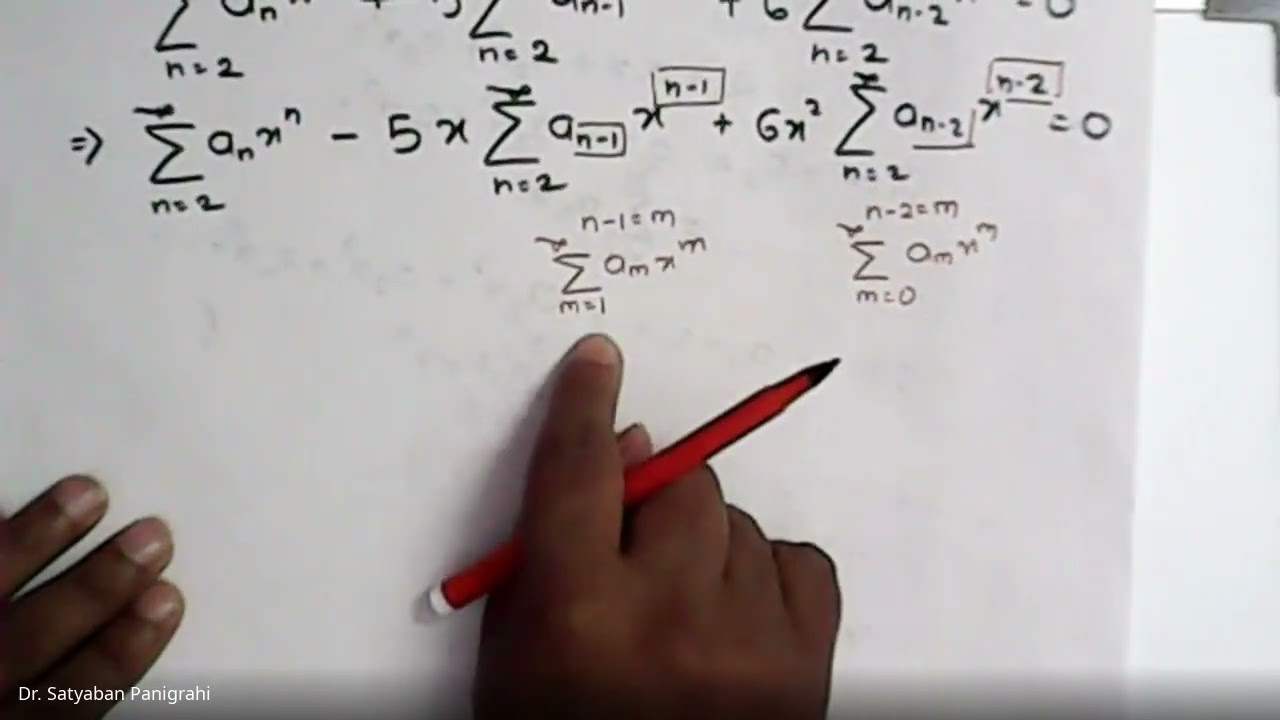 ∑ aₙ + 5 ∑ aₙ₋₁ + 6 ∑ aₙ₋₂ = 0
n=2 n=2 n=2
⇒ ∞∑n=2 aₙxⁿ - 5x ∞∑n=2 aₙ₋₁ xⁿ⁻¹ + 6x² ∞∑n=2 aₙ₋₂ xⁿ⁻² = 0
n-1=m n-2=m
∞∑m=1 aₘxᵐ ∞∑m=0 aₘxᵐ
Dr. Satyaban Panigrahi